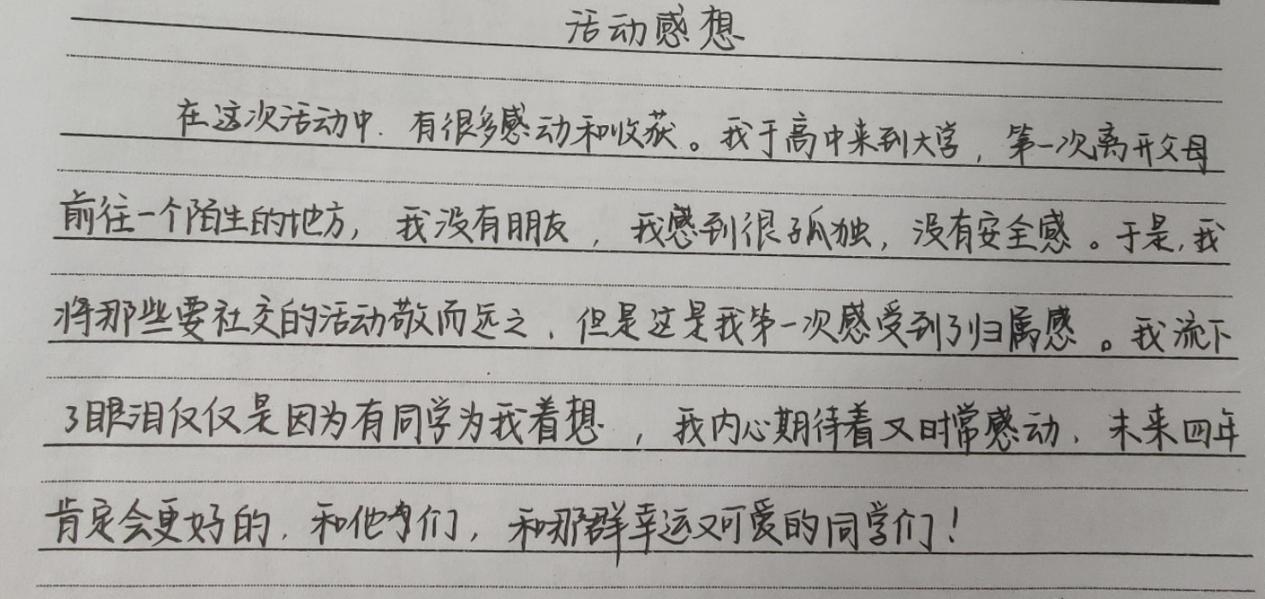 活动感想
在这次活动中.有很多感动和收获。我于高中来到大学，第一次离开父母
前往一个陌生的地方，我没有朋友，我感到很孤独，没有安全感。于是，我
将那些要社交的活动敬而远之，但是这是我第一次感受到了归属感。我流下
了眼泪仅仅是因为有同学为我着想，我内心期待着又时常感动，未来四年
肯定会更好的，和他们，和那群幸运又可爱的同学们！